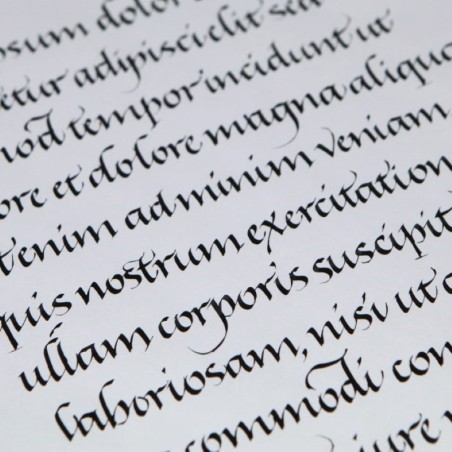 dolor
adipisci elit sed
tempor incidunt ut
et dolore magna aliqua
enim ad minim veniam
quis nostrum exercitation
ullam corporis suscipit
laboriosam, nisi ut
commodi con
iure